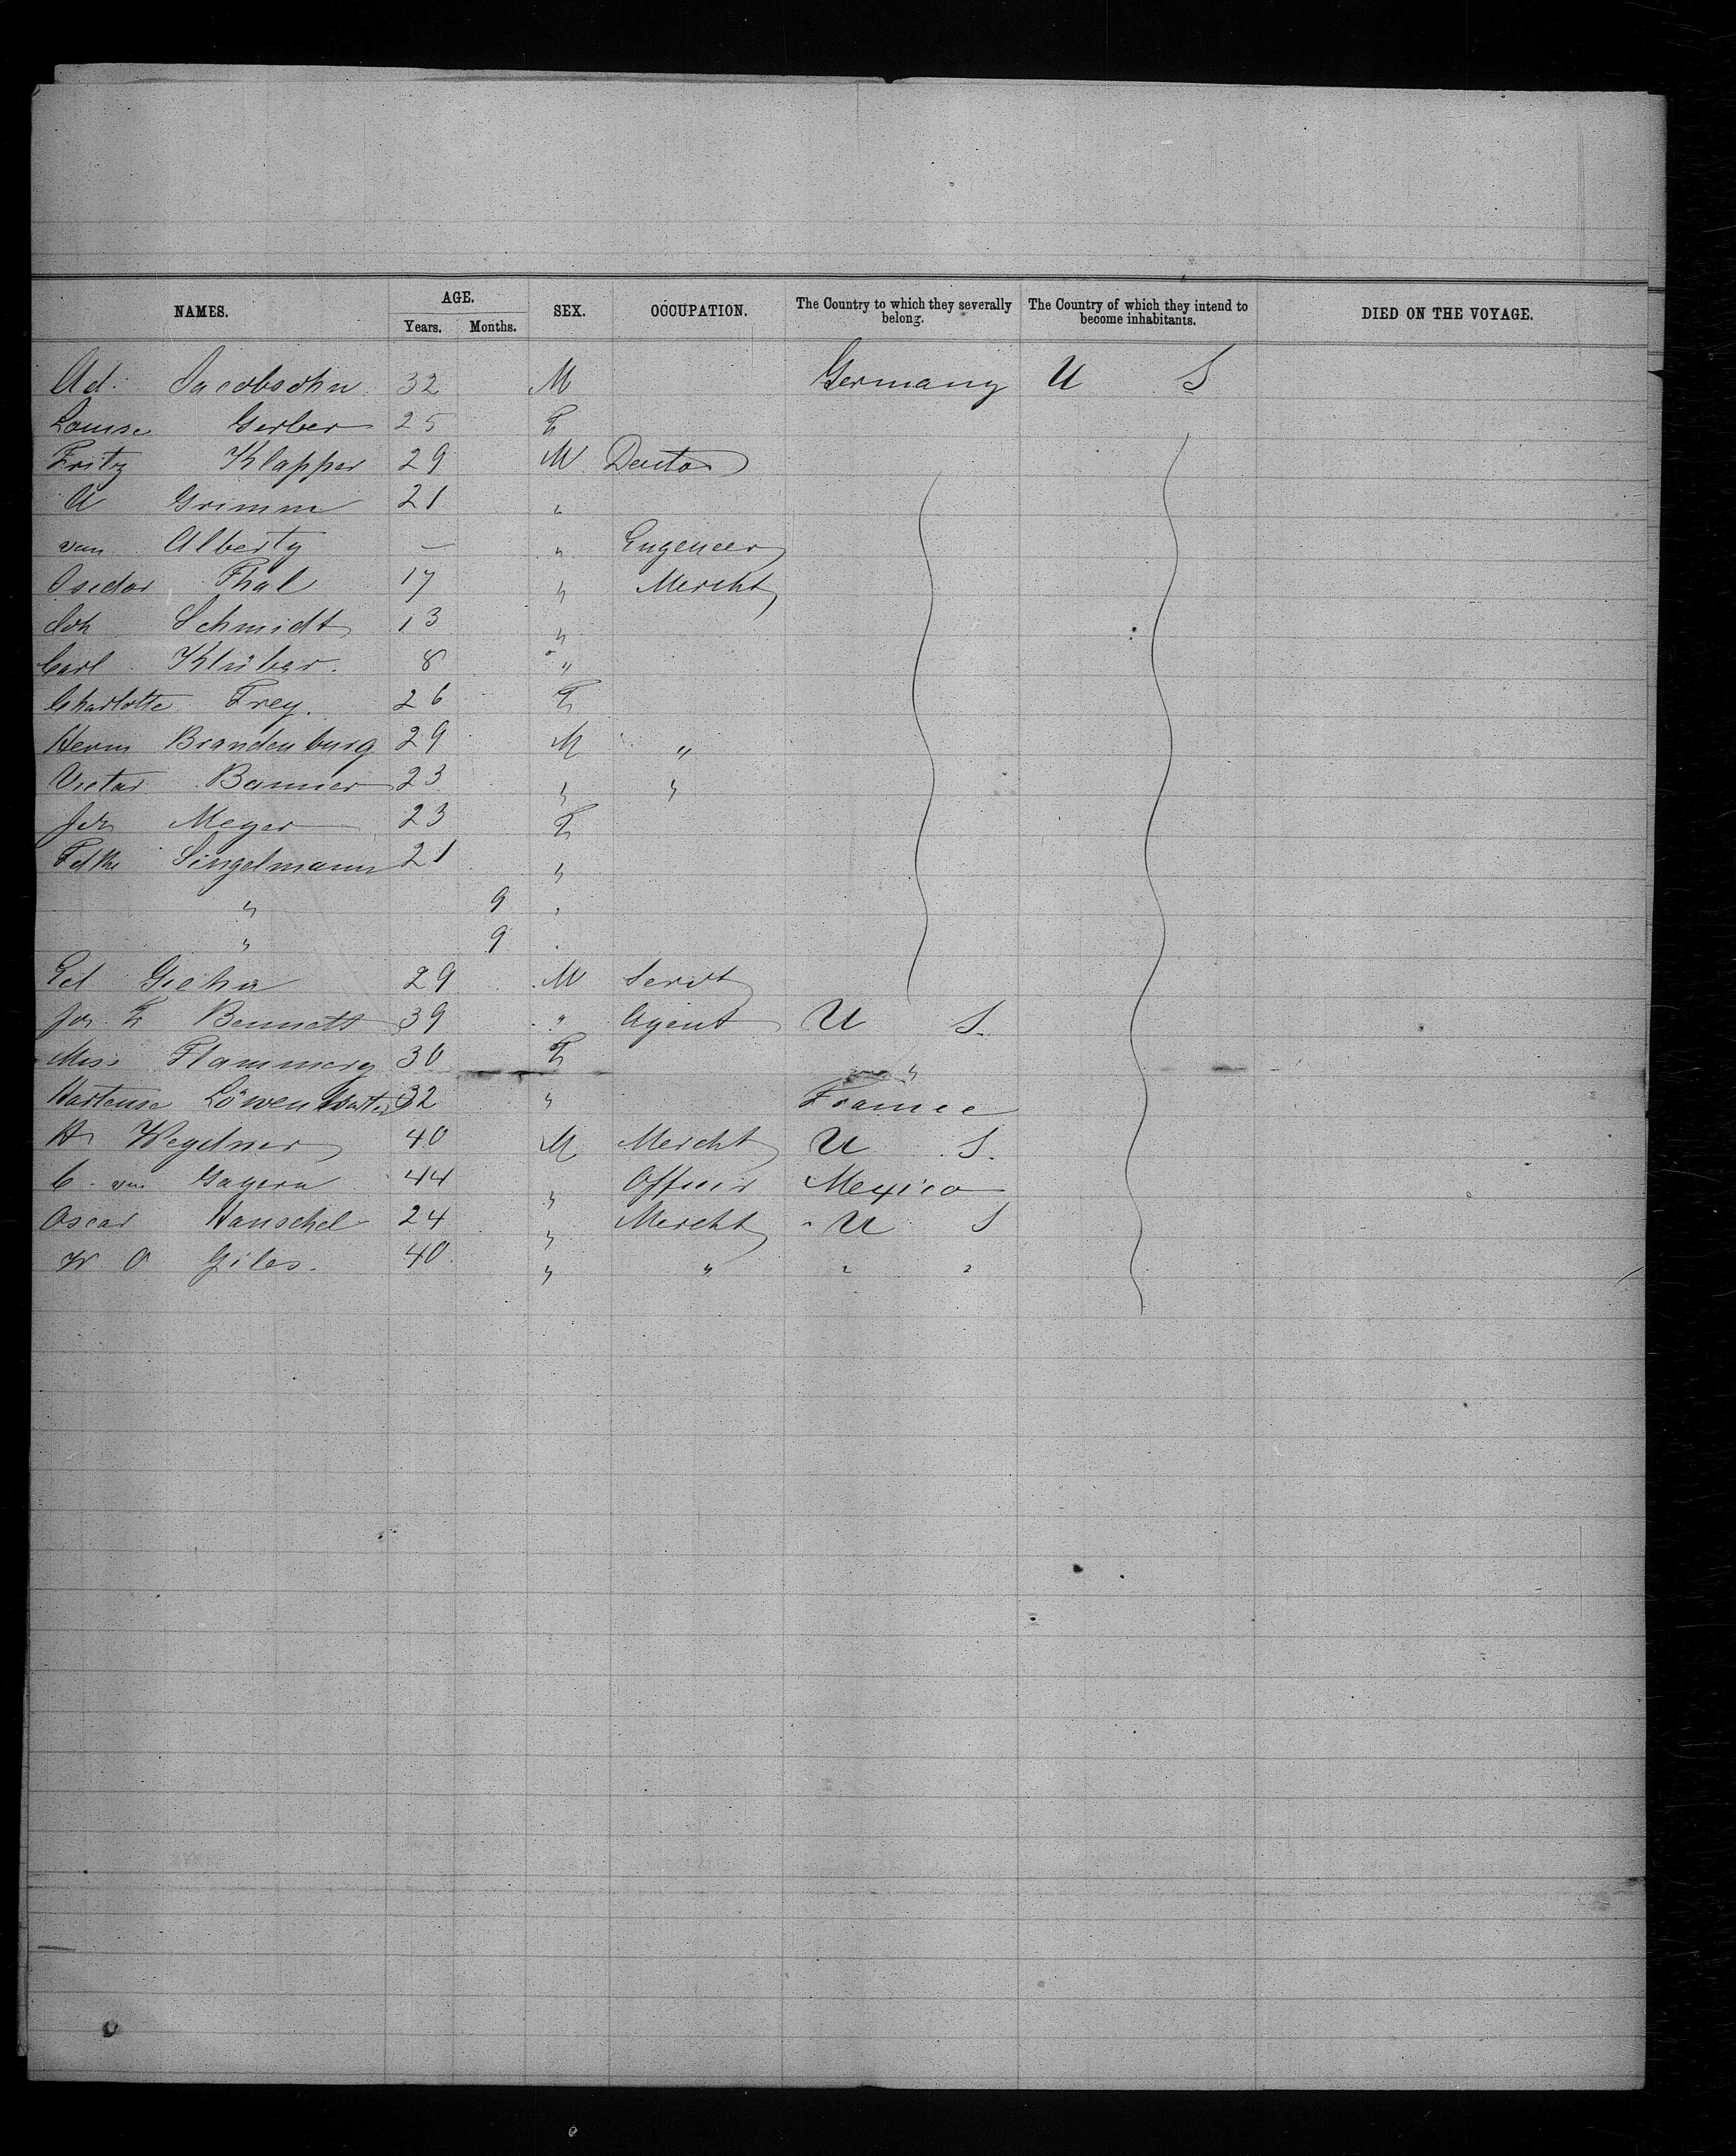 NAMES. AGE. SEX. OCCUPATION. The Country to which they severally belong. The Country of which they intend to become inhabitants. DIED ON THE VOYAGE.
Years. Months.
Ad. Jacobsohn 32 M Germany U S
Louise Gerber 25 F
Fritz Klapper 29 M Doctor
A Grimm 21 "
van Alberty — " Engeneer
Isidor Thal 17 " Mercht
Joh Schmidt 13 "
Carl Klüber. 8 "
Charlotte Frey. 26 F
Herm Brandenburg 29 M "
Victor Banner 23 " "
Meyer 23 F
Singelmann 21 "
" 9 "
" 9 "
Ed 29 M Servt
Jos. F Bennett 39 " Agent U S.
Miss Flammerg 30 F "
Hortense 32 " France
H 40 M Mercht U S.
C. von Gagern 44 " Officer Mexico
Oscar Hanschel 24 " Mercht U S
W O Giles. 40 " " " "